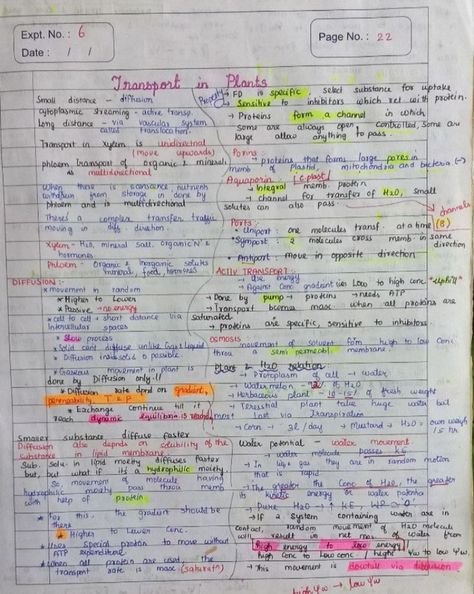 Expt. No. : 6
Date : / /
Page No. : 22
Transport in Plants
Small distance - diffusion
cytoplasmic streaming - active transp.
Long distance - via vascular system
called translocation.
Transport in Xylem is unidirectional
(move upwards)
phloem transport of organic & minerals
is multidirectional
When these nutrients
withdrawn from is storage is done by
phloem and is multidirectional
There's a complex transfer traffic
moving in diff. direction
Xylem - H2O, mineral salt, organic N2 &
hormones
Phloem - Organic & inorganic solutes
mineral, food, hormones
DIFFUSION :-
* movement in random
* Higher to Lower
* Passive - no energy
* cell to cell * short distance via
Intercellular spaces
* Slow process
* Solid cant diffuse unlike Gas & Liquid
* Diffusion inside solid is possible
* Gaseous movement in plant is
done by Diffusion only!!
* Diffusion rate dpnd on gradient,
permeability, T & P
* Exchange continue till
reach dynamic equilibrium is reached
Smaller substance diffuse faster
Diffusion also depends on solubility of the
substance in lipid membrane
Sub. solu. in lipid moeity diffuses faster
but, what if it's a hydrophilic moiety
So, movement of molecule having
hydrophilic moiety pass throu memb
with help of protein
* For this, the gradient should be
there
* Higher to Lower Conc.
* Uses special protein to move without
ATP expenditure.
* When all protein are used, the
transport rate is max (saturatn)
Property
→ FD is specific, select substance for uptake
→ Sensitive to inhibitors which rct with protein.
→ Proteins form a channel in which
some are always open, controlled, some are
large allow anything to pass.
Porins :
→ proteins that forms large pores in
memb of Plastid, mitochondria and bacteria (-)
Aquaporin :
→ Integral memb. protein
→ channel for transfer of H2O, small
solutes can also pass.
channels
(8)
Ports :
• Uniport : one molecules transf. at a time
• Symport : 2 molecules cross memb in same
direction
• Antiport : move in opposite direction
ACTIV TRANSPORT :-
→ Use energy
→ Against Conc gradient ie: Low to high conc "Uphill"
→ Done by pump → proteins → needs ATP
→ Transport become max when all proteins are
saturated
→ proteins are specific, sensitive to inhibitors.
OSMOSIS
→ movement of solvent from high to low Conc
throu a semi permeabl. membrane.
Plant & H2O relation
→ Protoplasm of cell → water
→ Watermelon - 92% H2O
→ Herbaceous plant - 10-15% of fresh weight
→ Terrestial plant take huge water but
most lost via Transpiration
→ Corn - 3L / day → Mustard → H2O = own weigh
/ 5 hr.
Water potential - water movement
→ water molecule posses K.E
→ In liq & gas they are in random motion
that is rapid
→ The greater the Conc of H2O, the greater
its kinetic energy or water potential
→ Pure H2O - ↑ KE
→ If 2 System containing water are in
contact, random movement of H2O molecule
will result in net mov. of water from
high energy to low energy
high Conc to Low conc / high Ψw to low Ψw.
→ This movement is downhill via diffusion
high Ψw → low Ψw